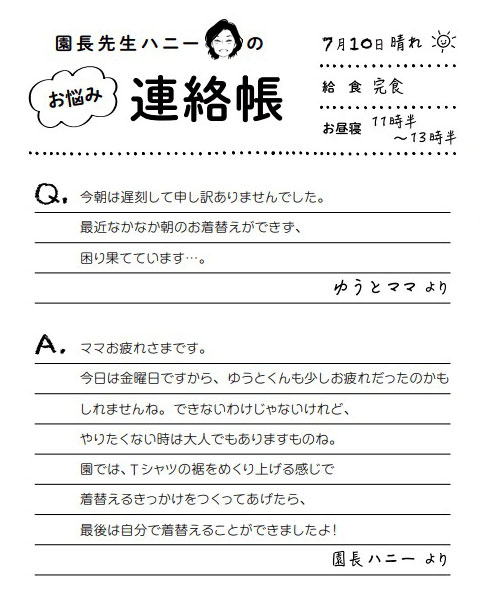 園長先生ハニーの
お悩み
連絡帳
7月10日 晴れ
給食 完食
お昼寝 11時半
～13時半
Q. 今朝は遅刻して申し訳ありませんでした。
最近なかなか朝のお着替えができず、
困り果てています…。
ゆうとママ より
A. ママお疲れさまです。
今日は金曜日ですから、ゆうとくんも少しお疲れだったのかも
しれませんね。できないわけじゃないけれど、
やりたくない時は大人でもありますものね。
園では、Tシャツの裾をめくり上げる感じで
着替えるきっかけをつくってあげたら、
最後は自分で着替えることができましたよ！
園長ハニー より